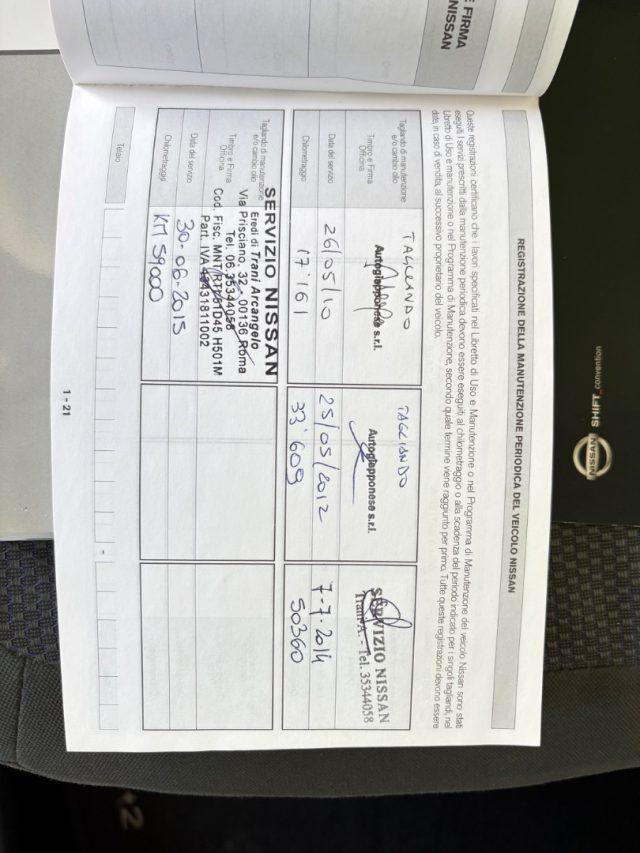 E FIRMA
NISSAN
REGISTRAZIONE DELLA MANUTENZIONE PERIODICA DEL VEICOLO NISSAN
Queste registrazioni certificano che i lavori specificati nel Libretto di Uso e Manutenzione o nel Programma di Manutenzione del veicolo Nissan sono stati
eseguiti. I servizi prescritti dalla manutenzione periodica devono essere eseguiti al chilometraggio o alla scadenza del periodo indicato per i singoli tagliandi, nel
Libretto di Uso e manutenzione o nel Programma di Manutenzione, secondo quale termine viene raggiunto per primo. Tutte queste registrazioni devono essere
date, in caso di vendita, al successivo proprietario del veicolo.
Tagliando di manutenzione
e/o cambio olio
TAGLIANDO
TAGLIANDO
Timbro e Firma
Officina
Autogiapponese s.r.l.
Autogiapponese s.r.l.
SERVIZIO NISSAN
Trani A. - Tel. 35344058
Data del servizio
26/05/10
25/05/2012
7-7-2014
Chilometraggio
17'161
33'609
50360
Tagliando di manutenzione
e/o cambio olio
Timbro e Firma
Officina
SERVIZIO NISSAN
Eredi di Trani Arcangelo
Via Prisciano, 32 - 00136 Roma
Tel. 06.35344058
Cod. Fisc. H501M
Part. IVA
Data del servizio
30-06-2015
Chilometraggio
KM 59000
Telaio
-
1 - 21
SHIFT_convention
NISSAN
+2